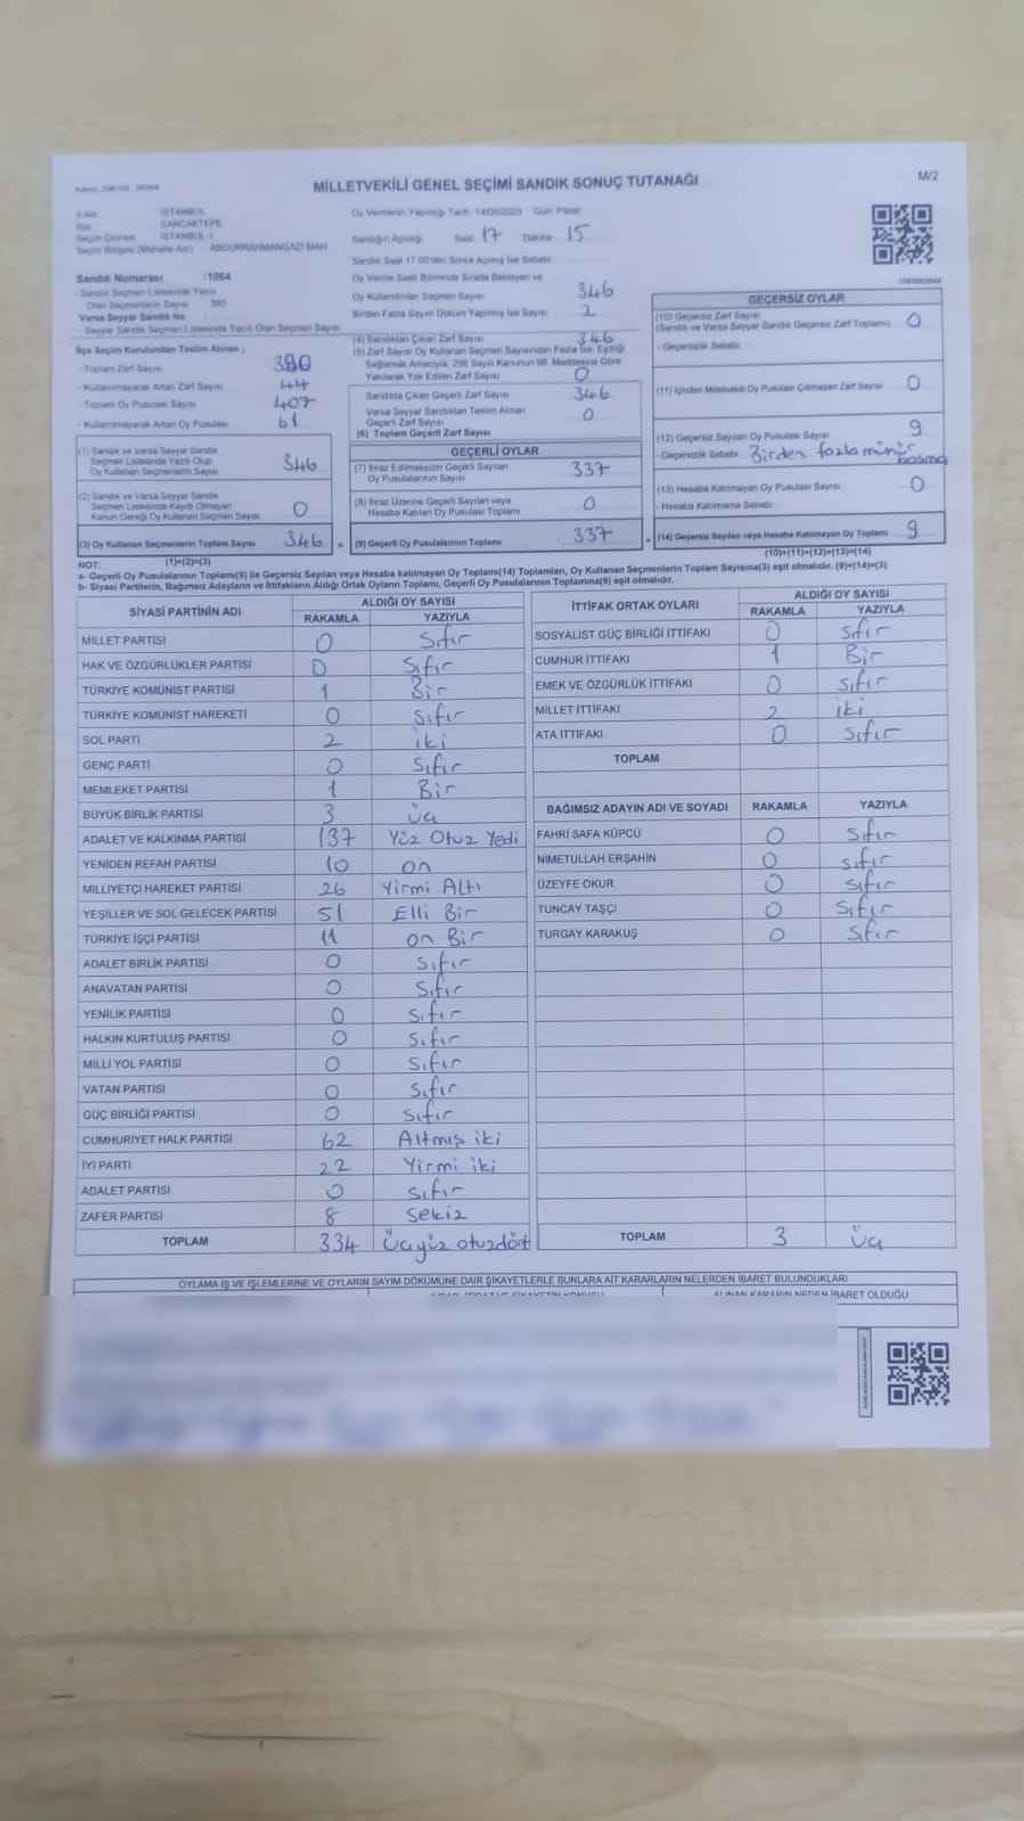 MİLLETVEKİLİ GENEL SEÇİMİ SANDIK SONUÇ TUTANAĞI
M/2
İSTANBUL
SANCAKTEPE
İSTANBUL-1
Seçim Bölgesi (Mahalle Adı) ABDURRAHMANGAZİ MAH
Oy Vermenin Yapıldığı Tarih: 14/05/2023 Gün: Pazar
Sandığın Açıldığı Saat 17 Dakika 15
Sandık Saat 17.00'den Sonra Açılmış İse Sebebi
Sandık Numarası :1064
Sandık Seçmen Listesinde Yazılı
Olan Seçmenlerin Sayısı 380
Varsa Seyyar Sandık No
Seyyar Sandık Seçmen Listesinde Yazılı Olan Seçmen Sayısı
Oy Verme Saati Bitiminde Sırada Bekleyen ve
Oy Kullandırılan Seçmen Sayısı 346
Birden Fazla Sayım Döküm Yapılmış İse Sayısı 2
İlçe Seçim Kurulundan Teslim Alınan ;
- Toplam Zarf Sayısı 380
- Kullanılmayarak Artan Zarf Sayısı 44
- Toplam Oy Pusulası Sayısı 407
- Kullanılmayarak Artan Oy Pusulası 61
(1) Sandık ve Varsa Seyyar Sandık
Seçmen Listesinde Yazılı Olup
Oy Kullanan Seçmenlerin Sayısı 346
(2) Sandık ve Varsa Seyyar Sandık
Seçmen Listesinde Kaydı Olmayan
Kanun Gereği Oy Kullanan Seçmen Sayısı 0
(3) Oy Kullanan Seçmenlerin Toplam Sayısı 346
(1)+(2)=(3)
(4) Sandıktan Çıkan Zarf Sayısı 346
(5) Zarf Sayısı Oy Kullanan Seçmen Sayısından Fazla İse, Eşitliği
Sağlamak Amacıyla, 298 Sayılı Kanunun 98. Maddesine Göre
Yakılarak Yok Edilen Zarf Sayısı 0
Sandıkta Çıkan Geçerli Zarf Sayısı 346
Varsa Seyyar Sandıktan Teslim Alınan
Geçerli Zarf Sayısı 0
(6) Toplam Geçerli Zarf Sayısı
GEÇERLİ OYLAR
(7) İtiraz Edilmeksizin Geçerli Sayılan
Oy Pusulalarının Sayısı 337
(8) İtiraz Üzerine Geçerli Sayılan veya
Hesaba Katılan Oy Pusulası Toplamı 0
(9) Geçerli Oy Pusulalarının Toplamı 337
GEÇERSİZ OYLAR
(10) Geçersiz Zarf Sayısı
(Sandık ve Varsa Seyyar Sandık Geçersiz Zarf Toplamı) 0
- Geçersizlik Sebebi
(11) İçinden Milletvekili Oy Pusulası Çıkmayan Zarf Sayısı 0
(12) Geçersiz Sayılan Oy Pusulası Sayısı 9
- Geçersizlik Sebebi Birden fazla mühür basma
(13) Hesaba Katılmayan Oy Pusulası Sayısı 0
- Hesaba Katılmama Sebebi
(14) Geçersiz Sayılan veya Hesaba Katılmayan Oy Toplamı 9
(10)+(11)+(12)+(13)=(14)
NOT:
a- Geçerli Oy Pusulalarının Toplamı(9) ile Geçersiz Sayılan veya Hesaba katılmayan Oy Toplamı(14) Toplamları, Oy Kullanan Seçmenlerin Toplam Sayısına(3) eşit olmalıdır. (9)+(14)=(3)
b- Siyasi Partilerin, Bağımsız Adayların ve İttifakların Aldığı Ortak Oyların Toplamı, Geçerli Oy Pusulalarının Toplamına(9) eşit olmalıdır.
SİYASİ PARTİNİN ADI ALDIĞI OY SAYISI
RAKAMLA YAZIYLA
MİLLET PARTİSİ 0 Sıfır
HAK VE ÖZGÜRLÜKLER PARTİSİ 0 Sıfır
TÜRKİYE KOMÜNİST PARTİSİ 1 Bir
TÜRKİYE KOMÜNİST HAREKETİ 0 Sıfır
SOL PARTİ 2 iki
GENÇ PARTİ 0 Sıfır
MEMLEKET PARTİSİ 1 Bir
BÜYÜK BİRLİK PARTİSİ 3 üç
ADALET VE KALKINMA PARTİSİ 137 Yüz Otuz Yedi
YENİDEN REFAH PARTİSİ 10 on
MİLLİYETÇİ HAREKET PARTİSİ 26 Yirmi Altı
YEŞİLLER VE SOL GELECEK PARTİSİ 51 Elli Bir
TÜRKİYE İŞÇİ PARTİSİ 11 on Bir
ADALET BİRLİK PARTİSİ 0 Sıfır
ANAVATAN PARTİSİ 0 Sıfır
YENİLİK PARTİSİ 0 Sıfır
HALKIN KURTULUŞ PARTİSİ 0 Sıfır
MİLLİ YOL PARTİSİ 0 Sıfır
VATAN PARTİSİ 0 Sıfır
GÜÇ BİRLİĞİ PARTİSİ 0 Sıfır
CUMHURİYET HALK PARTİSİ 62 Altmış iki
İYİ PARTİ 22 Yirmi iki
ADALET PARTİSİ 0 Sıfır
ZAFER PARTİSİ 8 Sekiz
TOPLAM 334 Üçyüz otuzdört
İTTİFAK ORTAK OYLARI ALDIĞI OY SAYISI
RAKAMLA YAZIYLA
SOSYALİST GÜÇ BİRLİĞİ İTTİFAKI 0 Sıfır
CUMHUR İTTİFAKI 1 Bir
EMEK VE ÖZGÜRLÜK İTTİFAKI 0 Sıfır
MİLLET İTTİFAKI 2 iki
ATA İTTİFAKI 0 Sıfır
TOPLAM
BAĞIMSIZ ADAYIN ADI VE SOYADI RAKAMLA YAZIYLA
FAHRİ SAFA KÜPCÜ 0 Sıfır
NİMETULLAH ERŞAHİN 0 Sıfır
ÜZEYFE OKUR 0 Sıfır
TUNCAY TAŞÇI 0 Sıfır
TURGAY KARAKUŞ 0 Sıfır
TOPLAM 3 Üç
OYLAMA İŞ VE İŞLEMLERİNE VE OYLARIN SAYIM DÖKÜMÜNE DAİR ŞİKAYETLERLE BUNLARA AİT KARARLARIN NELERDEN İBARET BULUNDUKLARI
ALINAN KARARIN NEDEN İBARET OLDUĞU